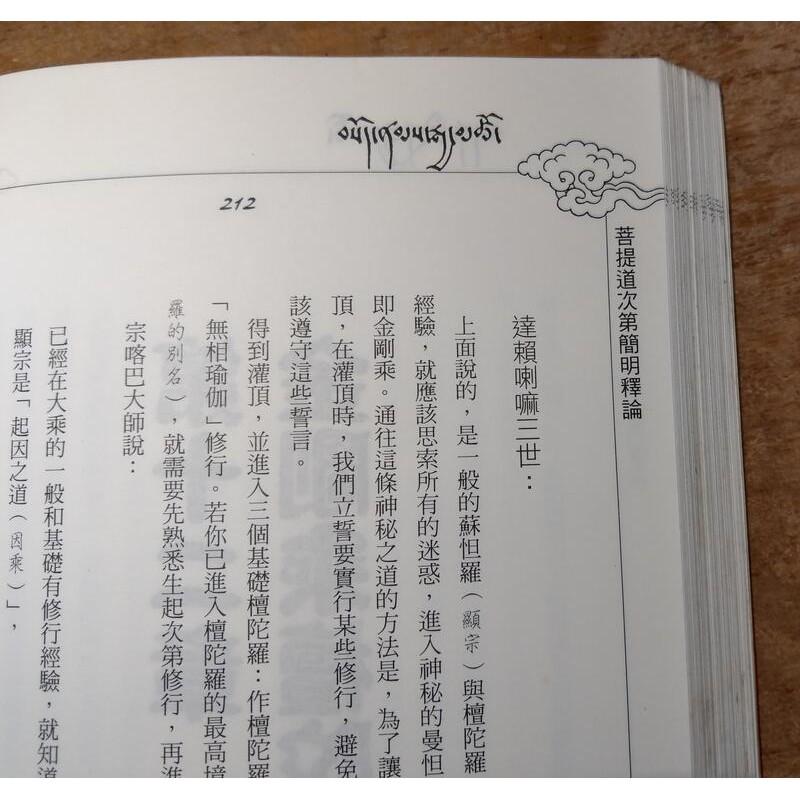 212
菩提道次第簡明釋論
達賴喇嘛三世：
上面說的，是一般的蘇怛羅（顯宗）與檀陀羅
經驗，就應該思索所有的迷惑，進入神秘的曼怛
即金剛乘。通往這條神秘之道的方法是，為了讓
頂，在灌頂時，我們立誓要實行某些修行，避免
該遵守這些誓言。
得到灌頂，並進入三個基礎檀陀羅：作檀陀羅
「無相瑜伽」修行。若你已進入檀陀羅的最高境
羅的別名），就需要先熟悉生起次第修行，再進
宗喀巴大師說：
已經在大乘的一般和基礎有修行經驗，就知道
顯宗是「起因之道（因乘）」，